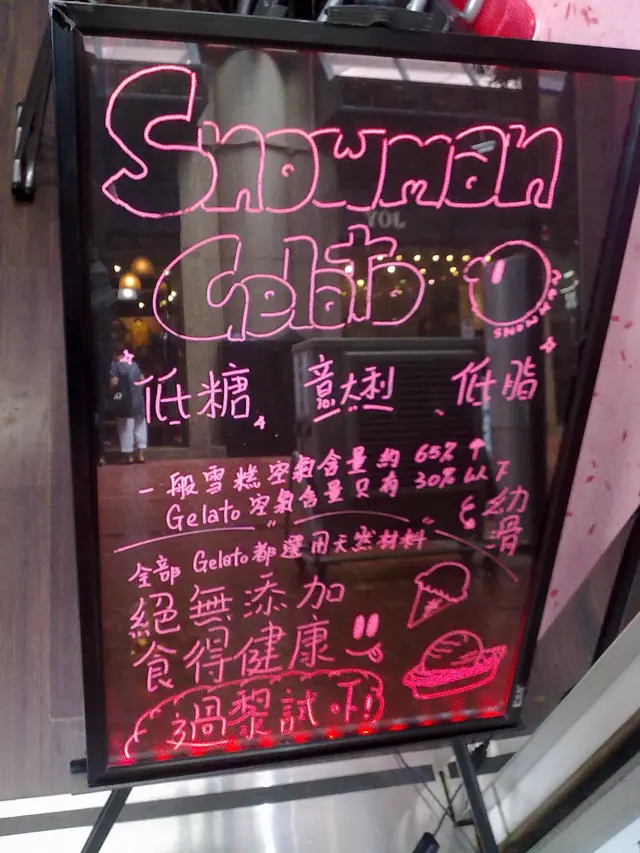 Snowman
Gelato
SNOWMAN
低糖 意大利 低脂
一般雪糕空氣含量約 65% ↑
Gelato 空氣含量只有 30% 以下
幼滑
全部 Gelato都選用天然材料
絕無添加
食得健康
過黎試下!